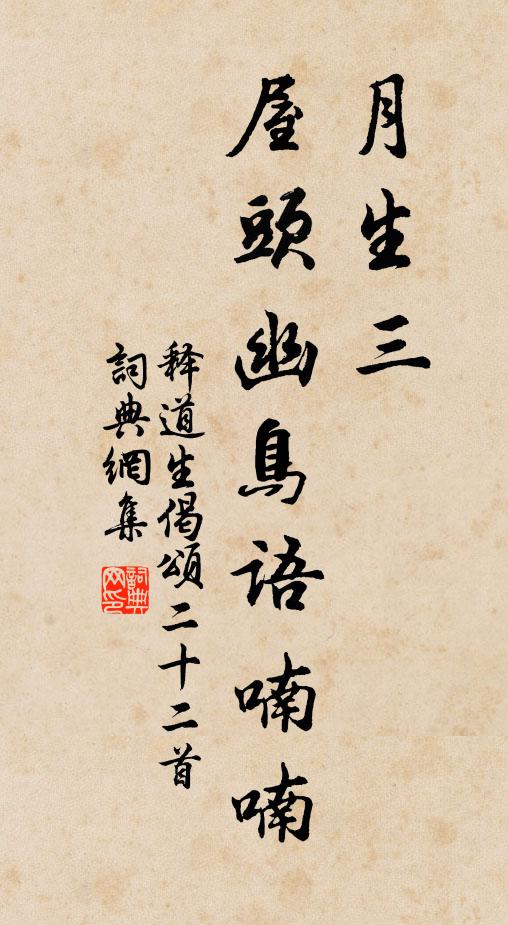 月生三
屋頭幽鳥語喃喃
释道生偈頌二十二首
詞典網集
詞典网印